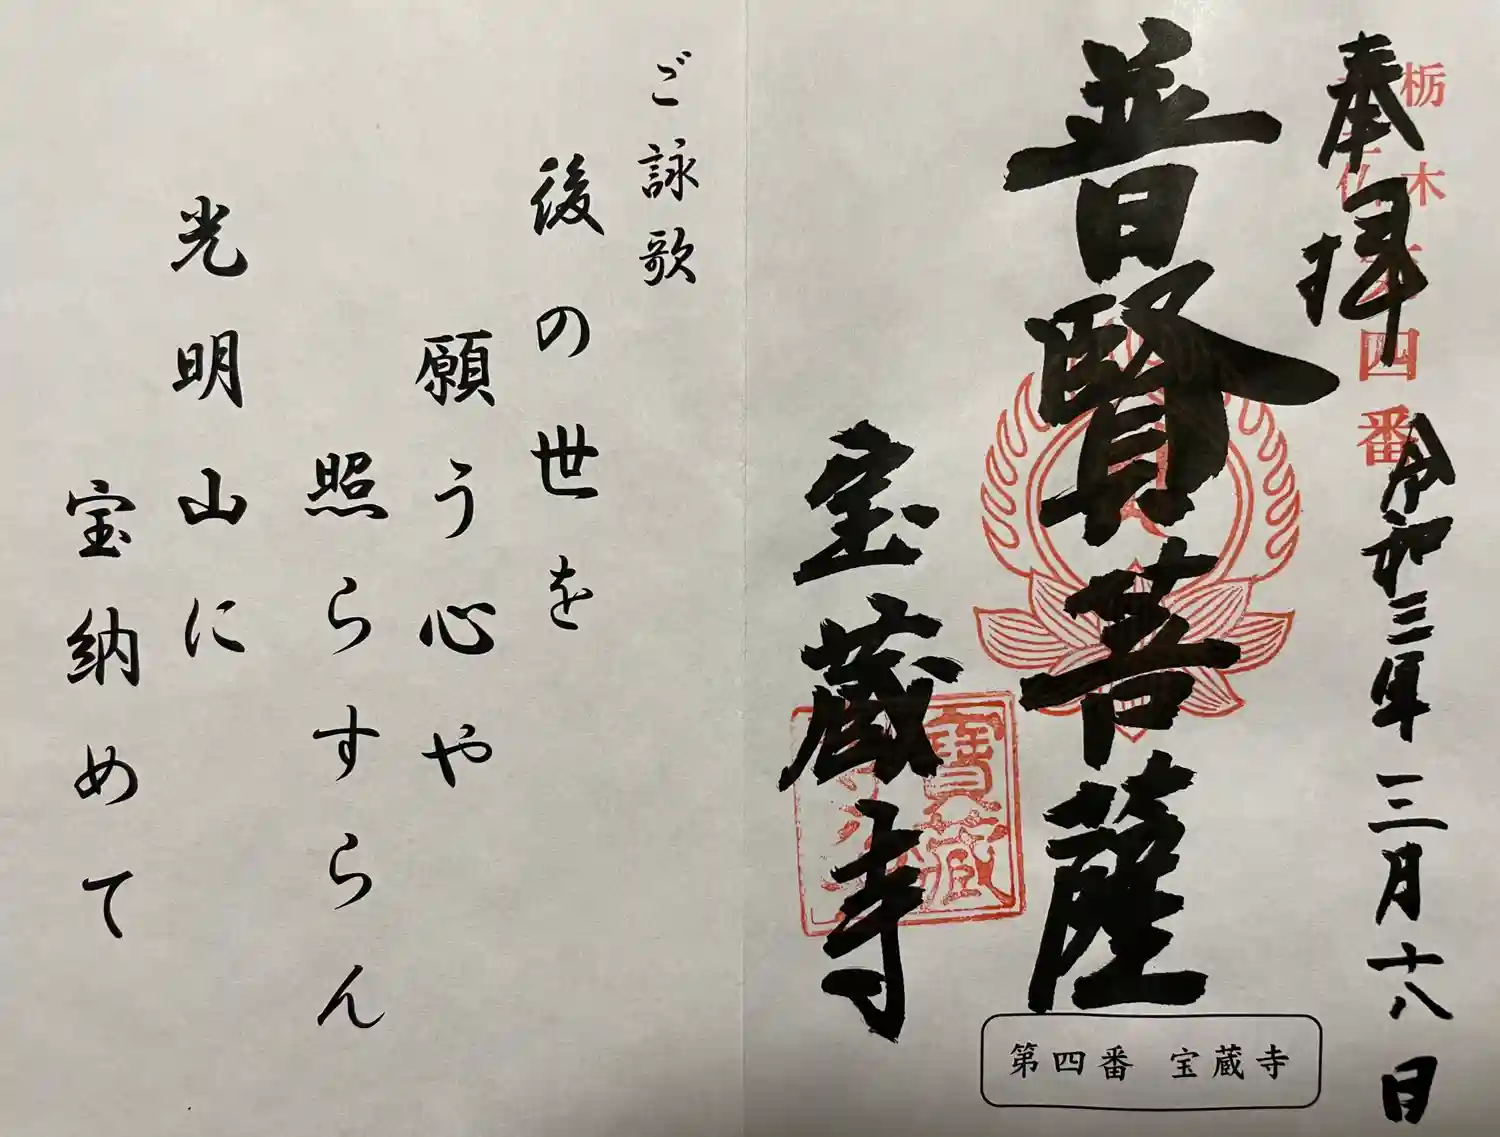 栃木
十三仏
第四番
奉拝
令和三年三月十八日
普賢菩薩
宝蔵寺
寶藏
第四番 宝蔵寺
ご詠歌
後の世を
願う心や
照らすらん
光明山に
宝納めて